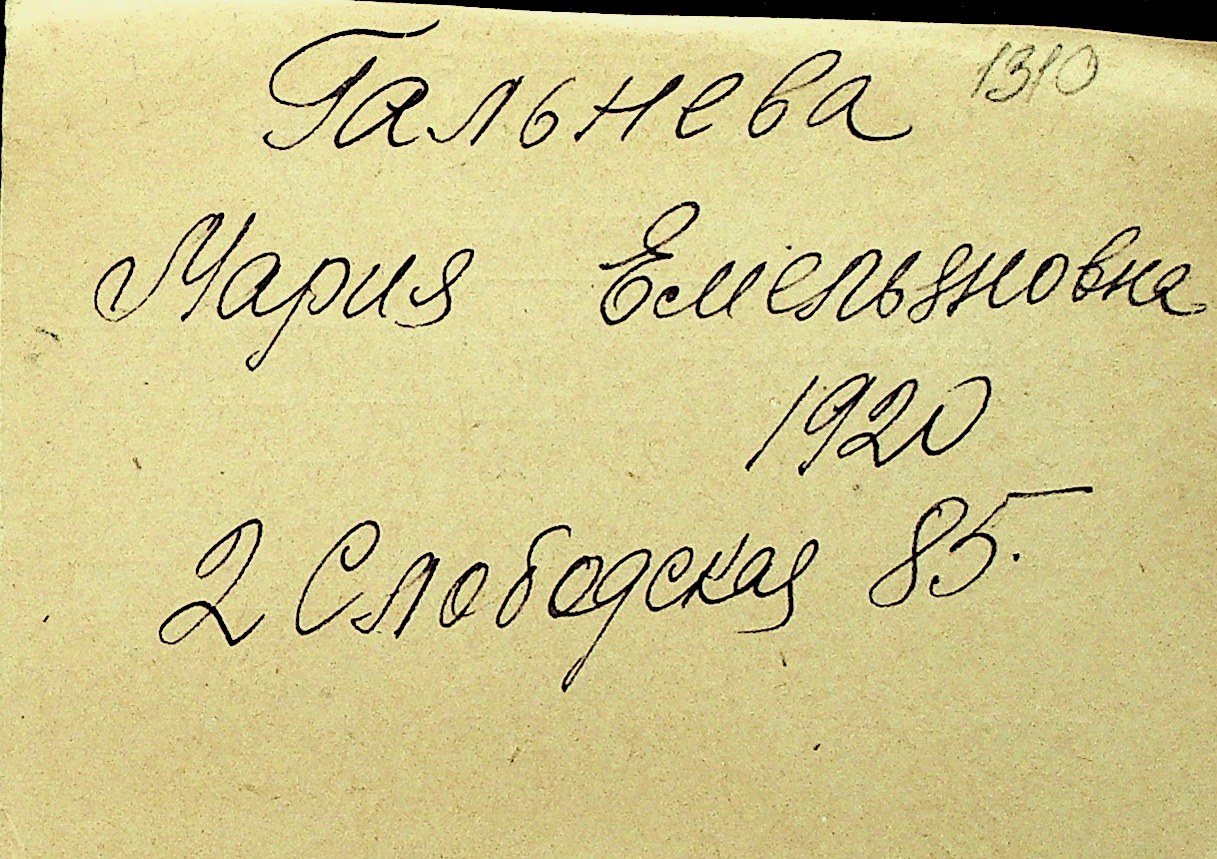 Гальнева 1310
Мария Емельяновна
1920
2 Слободская 85.